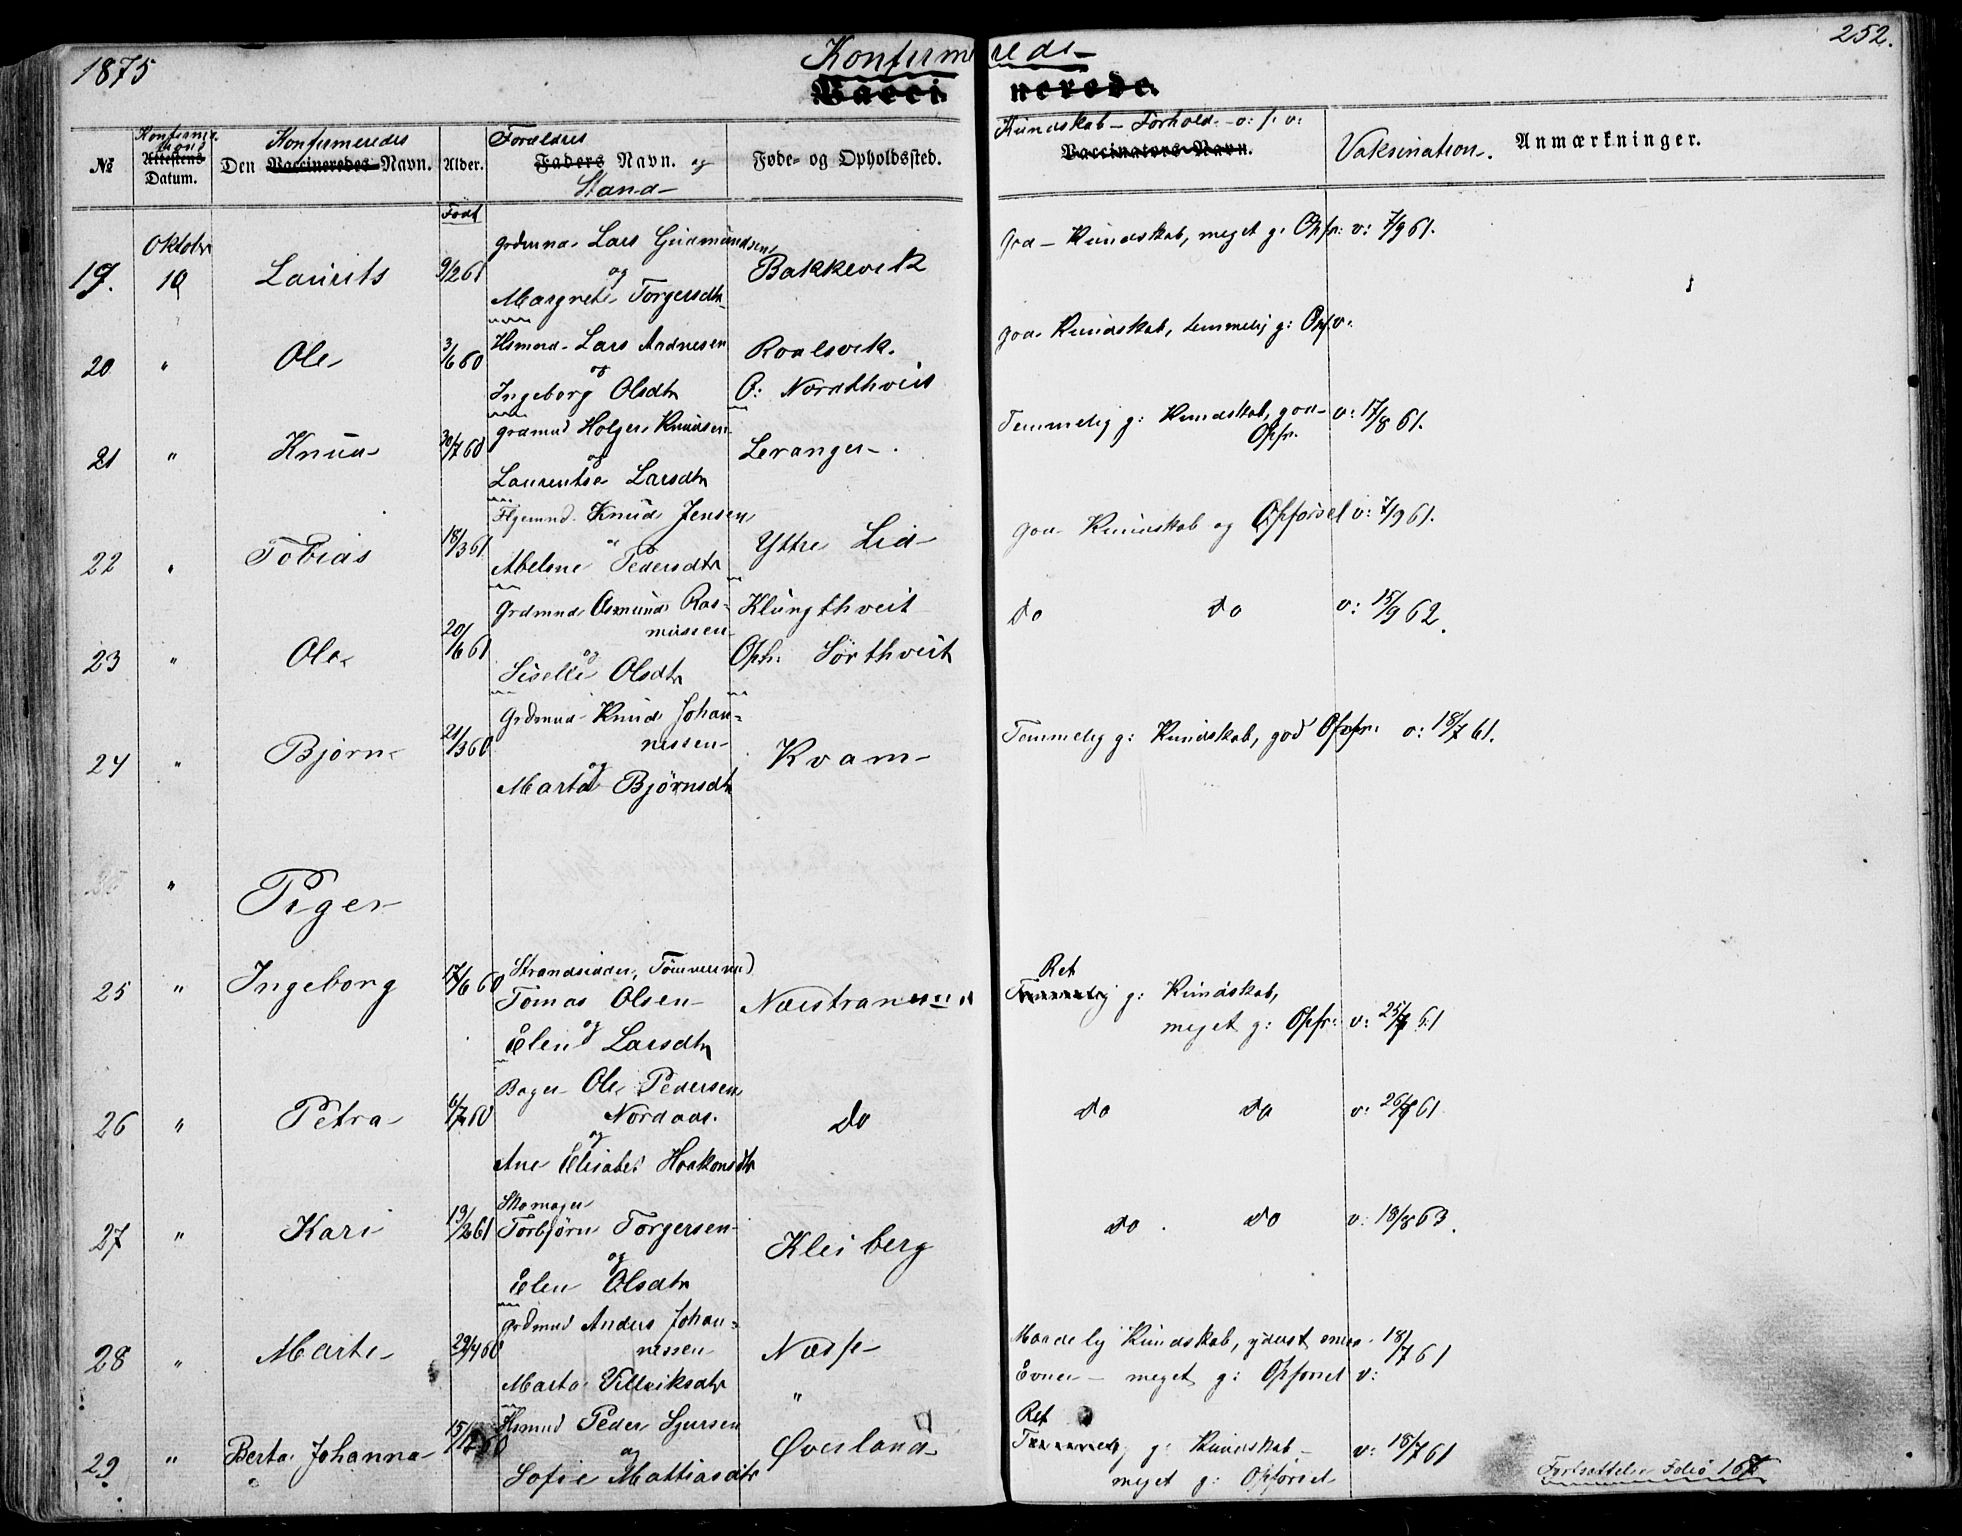 1875
Konfirmerede
252.
Vaccinerede.
No
Konfirma-
tions
Attestens
Datum.
Konfirmeredes
Den Vaccineredes Navn.
Alder.
Forældres
Faders Navn. og
Stand
Føde- og Opholdssted.
Kundskab- Forhold. o: s: v:
Vaccinators Navn.
Vaksination.
Anmærkninger.
Født
Oktobr
19. 10 Laurits 9/2 61
Grdmnd Lars Gudmundsen
og
Margrete Torgersdtr
Bakkevik
God Kundskab, meget g: Opfr: v: 7/9 61.
20 " Ole 3/6 60
Hsmnd Lars Aadnesen
og
Ingeborg Olsdtr
Roalsvik.
O: Nordthveit
God Kundskab, temmelig g: Opf v:
21 " Knud 30/7 60
Grdmnd Holger Knudsen
og
Laurentse Larsdtr
Leranger
Temmelig g: Kundskab, god v: 17/8 61.
Opfr.
22 " Tobias 18/3 61
Knud Jensen
"
Abelone Pedersdtr
Ytre Lid
God Kundskab og Opførsel v: 7/9 61.
23 " Ole 20/6 61
Grdmnd Osmund Ras-
mussen
og
Siselle Olsdtr
Klungthveit
Oph: Sørthveit
do do v: 15/9 62.
24 " Bjørn 21/3 60
Grdmnd Knud Johan=
nessen
og
Marta Bjørnsdtr
Kvam
Temmelig g: Kundskab, god Opfr: v: 18/7 61.
" Piger
25 " Ingeborg 17/6 60
Strandsidder, Tømmermd
Tomas Olsen
og
Elen Larsdtr
Næstranden
Ret
Temmelig g: Kundskab,
meget g: Opfr: v: 25/7 61
26 " Petra 6/7 60
Bager Ole Pedersen
Nordaas.
og
Ane Elisabet Haakonsdtr
do
do do v: 26/7 61
27 " Kari 19/2 61
Skomager
Torbjørn Torgersen
og
Elen Olsdtr
Kleiberg
do do v: 18/8 63.
28 " Marte 29/4 60
Grdmnd Anders Johan=
nessen
Marta Villeiksdtr
Næsse
"
Maadelig Kundskab, yderst smaa 18/7 61
Evner meget g: Opførsel v:
29 " Berta Johanna 15/12 60
Hsmnd Peder Sjursen
og
Sofie Mattiasdtr
Øverland
Ret
Temmelig g: Kundskab v: 18/7 61
meget g: Opførsel
Fortsættelse Folio 167